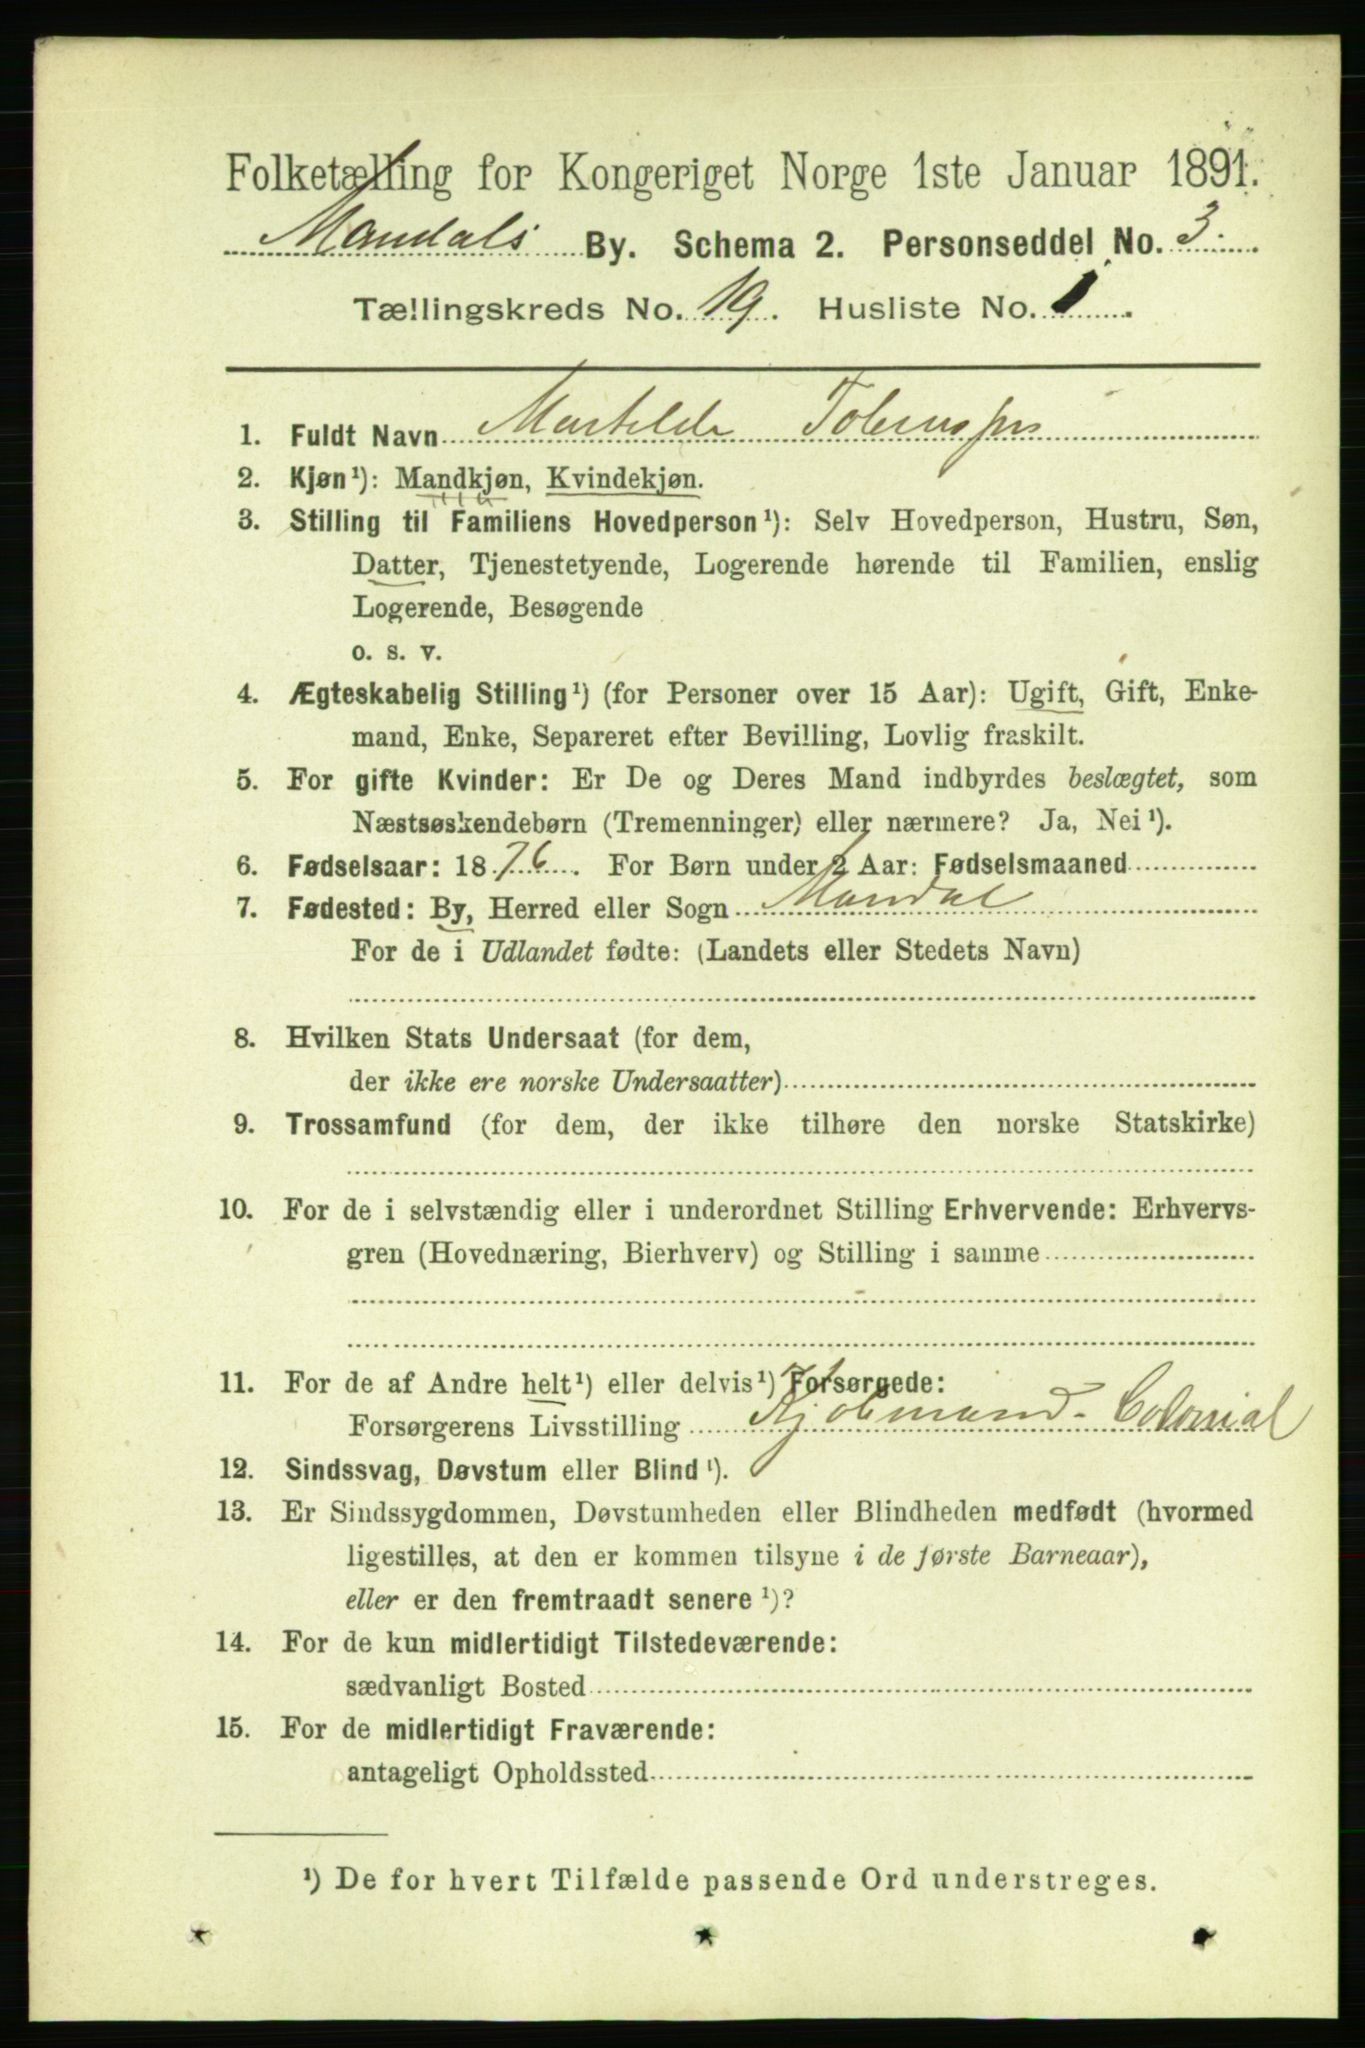 Folketælling for Kongeriget Norge 1ste Januar 1891.
Mandals By. Schema 2. Personseddel No. 3.
Tællingskreds No. 19. Husliste No. 1.
1. Fuldt Navn Mathilde
2. Kjøn¹): Mandkjøn, Kvindekjøn.
3. Stilling til Familiens Hovedperson¹): Selv Hovedperson, Hustru, Søn,
Datter, Tjenestetyende, Logerende hørende til Familien, enslig
Logerende, Besøgende
o. s. v.
4. Ægteskabelig Stilling¹) (for Personer over 15 Aar): Ugift, Gift, Enke-
mand, Enke, Separeret efter Bevilling, Lovlig fraskilt.
5. For gifte Kvinder: Er De og Deres Mand indbyrdes beslægtet, som
Næstsøskendebørn (Tremenninger) eller nærmere? Ja, Nei¹).
6. Fødselsaar: 1876. For Børn under 2 Aar: Fødselsmaaned
7. Fødested: By, Herred eller Sogn Mandal
For de i Udlandet fødte: (Landets eller Stedets Navn)
8. Hvilken Stats Undersaat (for dem,
der ikke ere norske Undersaatter)
9. Trossamfund (for dem, der ikke tilhøre den norske Statskirke)
10. For de i selvstændig eller i underordnet Stilling Erhvervende: Erhvervs-
gren (Hovednæring, Bierhverv) og Stilling i samme
11. For de af Andre helt¹) eller delvis¹) Forsørgede:
Forsørgerens Livsstilling Kjøbmand - Colonial
12. Sindssvag, Døvstum eller Blind¹).
13. Er Sindssygdommen, Døvstumheden eller Blindheden medfødt (hvormed
ligestilles, at den er kommen tilsyne i de første Barneaar),
eller er den fremtraadt senere¹)?
14. For de kun midlertidigt Tilstedeværende:
sædvanligt Bosted
15. For de midlertidigt Fraværende:
antageligt Opholdssted
¹) De for hvert Tilfælde passende Ord understreges.